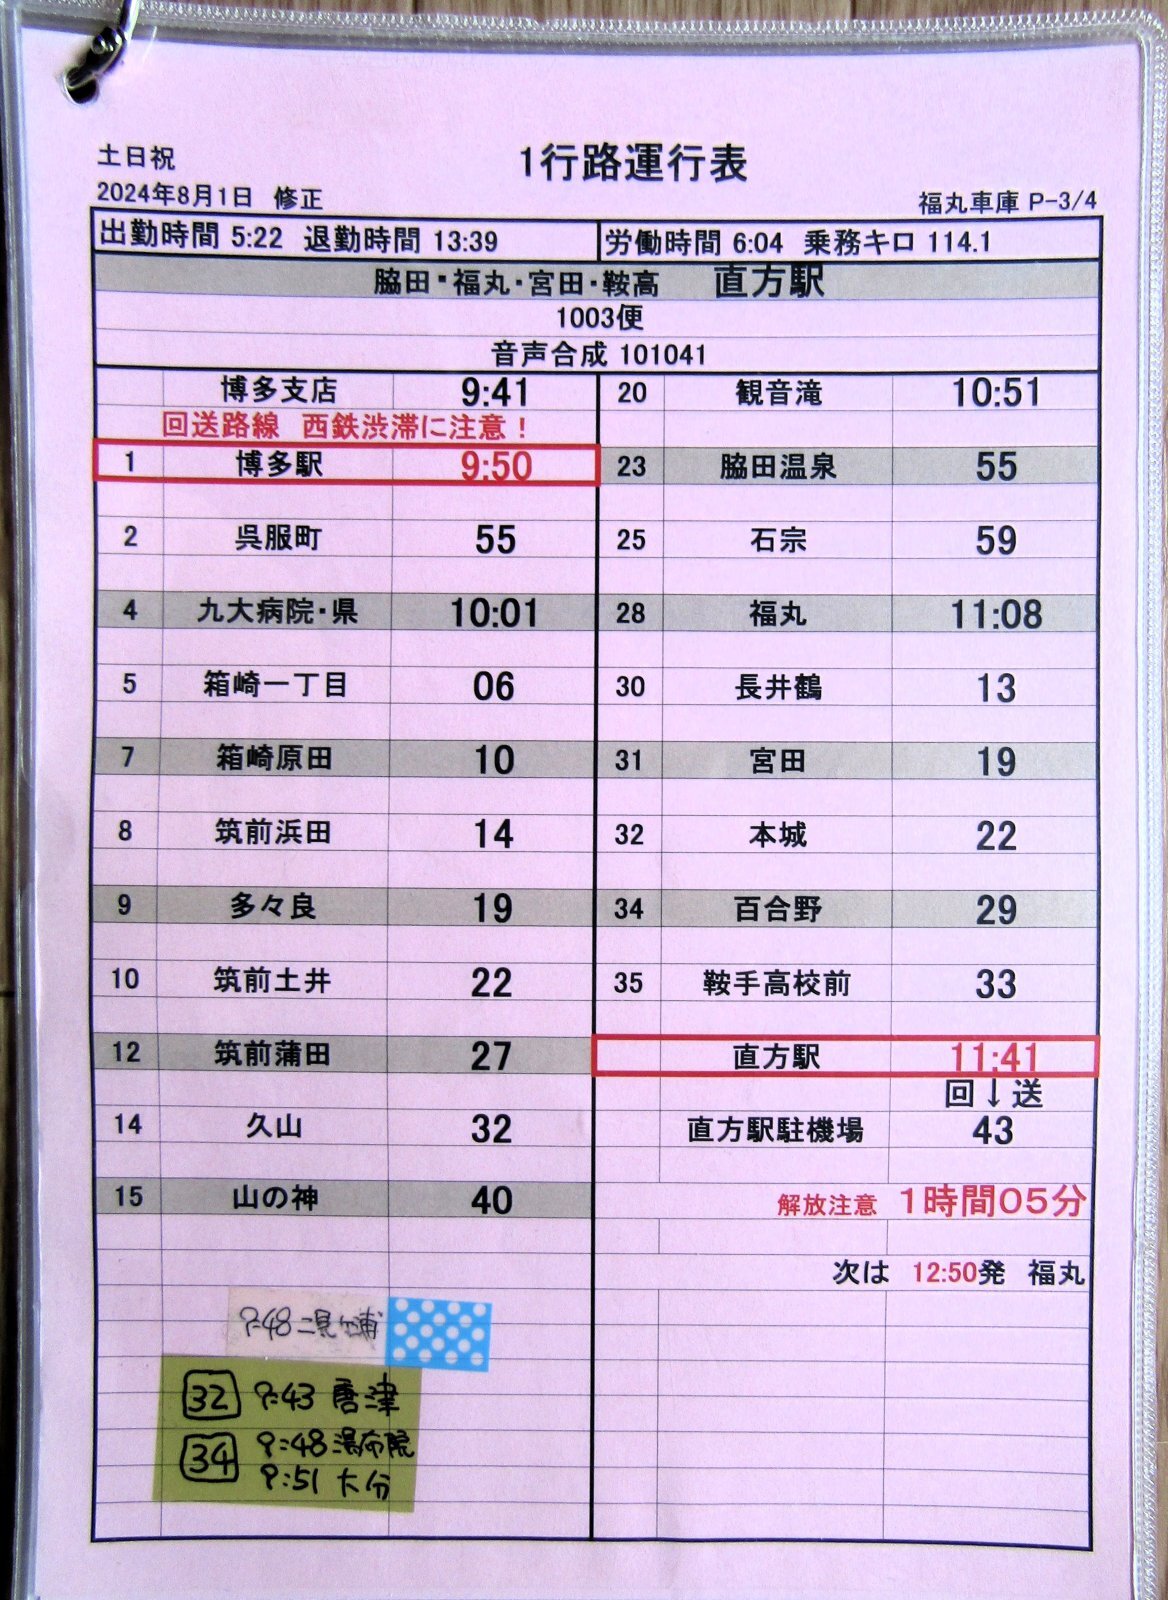 土日祝
1行路運行表
2024年8月1日 修正
福丸車庫 P-3/4
出勤時間 5:22 退勤時間 13:39
労働時間 6:04 乗務キロ 114.1
脇田・福丸・宮田・鞍高 直方駅
1003便
音声合成 101041
博多支店 9:41
回送路線 西鉄渋滞に注意！
1 博多駅 9:50
2 呉服町 55
4 九大病院・県 10:01
5 箱崎一丁目 06
7 箱崎原田 10
8 筑前浜田 14
9 多々良 19
10 筑前土井 22
12 筑前蒲田 27
14 久山 32
15 山の神 40
9:48 二見ヶ浦
32 9:43 唐津
34 9:48 湯布院
9:51 大分
20 観音滝 10:51
23 脇田温泉 55
25 石宗 59
28 福丸 11:08
30 長井鶴 13
31 宮田 19
32 本城 22
34 百合野 29
35 鞍手高校前 33
直方駅 11:41
回↓送
直方駅駐機場 43
解放注意 1時間05分
次は 12:50発 福丸